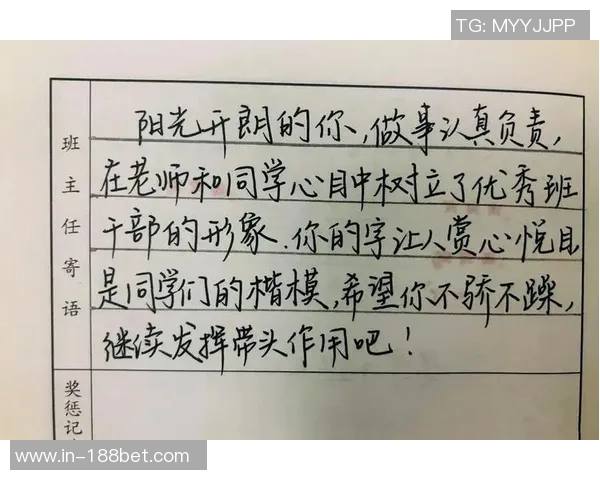 TG: MYYJJPP
班主任寄语
阳光开朗的你,做事认真负责,
在老师和同学心目中树立了优秀班
干部的形象.你的字让人赏心悦目
是同学们的楷模,希望你不骄不躁,
继续发挥带头作用吧!
奖惩记
www.in-188bet.com